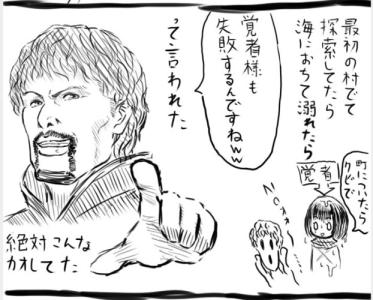 最初の村でて
探索してたら
海におちて溺れたら
覚者様も
失敗するんですねww
って言われた
覚者
町についたら
クビで
絶対こんな
カオしてた